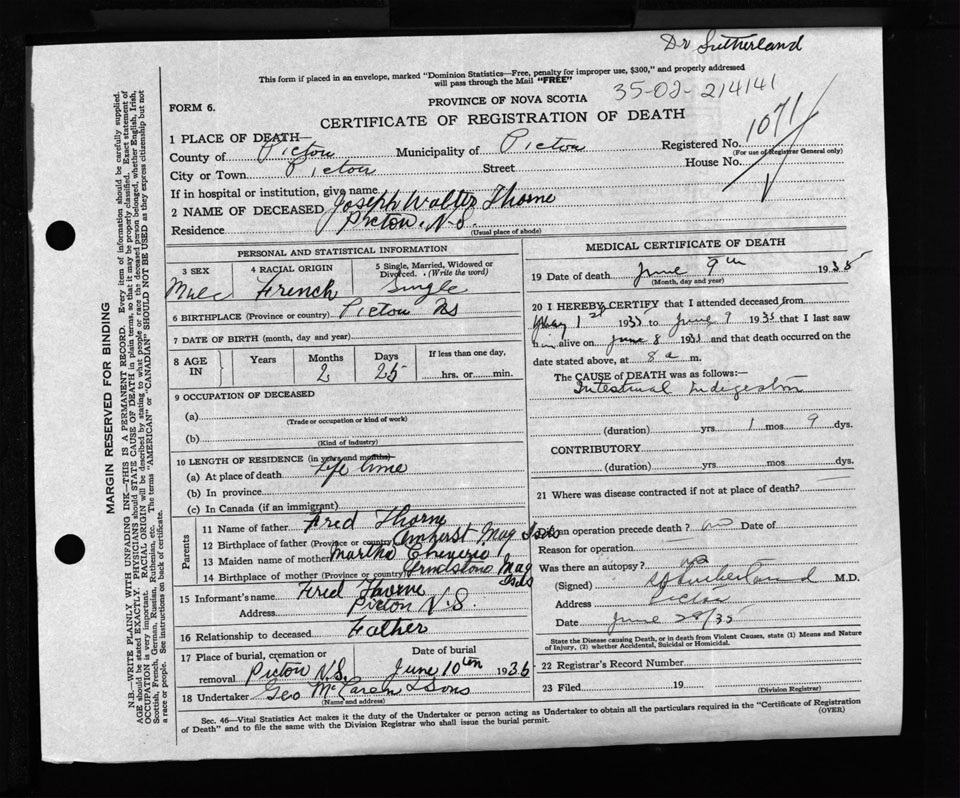 Dr Sutherland
This form if placed in an envelope, marked "Dominion Statistics—Free, penalty for improper use, $300," and properly addressed
will pass through the Mail "FREE"
35-02-214141
FORM 6.
PROVINCE OF NOVA SCOTIA
CERTIFICATE OF REGISTRATION OF DEATH
1 PLACE OF DEATH—
Registered No. 1071
(For use of Registrar General only)
County of Pictou Municipality of Pictou
City or Town Pictou Street House No.
If in hospital or institution, give name
2 NAME OF DECEASED Joseph Walter Thorne
Residence Pictou, N.S.
(Usual place of abode)
PERSONAL AND STATISTICAL INFORMATION
3 SEX 4 RACIAL ORIGIN 5 Single, Married, Widowed or
Divorced. (Write the word)
Male French Single
6 BIRTHPLACE (Province or country) Pictou NS
7 DATE OF BIRTH (month, day and year)
8 AGE IN Years Months 2 Days 25 If less than one day,
hrs. or min.
9 OCCUPATION OF DECEASED
(a)
(Trade or occupation or kind of work)
(b)
(Kind of industry)
10 LENGTH OF RESIDENCE (in years and months)
(a) At place of death Life time
(b) In province
(c) In Canada (if an immigrant)
Parents
11 Name of father Fred Thorne
12 Birthplace of father (Province or country) Amherst Mag Isds
13 Maiden name of mother Martha
14 Birthplace of mother (Province or country) Grindstone Mag Isds
15 Informant's name Fred Thorne
Address Pictou N.S.
16 Relationship to deceased Father
17 Place of burial, cremation or Date of burial
removal Pictou N.S. June 10th 1936
18 Undertaker Geo McLaren & Sons
(Name and address)
MEDICAL CERTIFICATE OF DEATH
19 Date of death June 9th 1935
(Month, day and year)
20 I HEREBY CERTIFY that I attended deceased from
May 1st 1935 to June 9 1935 that I last saw
him alive on June 8 1935 and that death occurred on the
date stated above, at 8 a m.
The CAUSE OF DEATH was as follows:—
Intestinal Indigestion
(duration) yrs 1 mos 9 dys.
CONTRIBUTORY
(duration) yrs. mos dys.
21 Where was disease contracted if not at place of death?
an operation precede death? no Date of
Reason for operation
Was there an autopsy? no
(Signed) Sutherland M.D.
Address Pictou
Date June 28/35
State the Disease causing Death, or in death from Violent Causes, state (1) Means and Nature
of Injury, (2) whether Accidental, Suicidal or Homicidal.
22 Registrar's Record Number
23 Filed 19
(Division Registrar)
Sec. 46—Vital Statistics Act makes it the duty of the Undertaker or person acting as Undertaker to obtain all the particulars required in the "Certificate of Registration
of Death" and to file the same with the Division Registrar who shall issue the burial permit.
(OVER)
MARGIN RESERVED FOR BINDING
N.B—WRITE PLAINLY WITH UNFADING INK—THIS IS A PERMANENT RECORD. Every item of information should be carefully supplied.
AGE should be stated EXACTLY. PHYSICIANS should STATE CAUSE OF DEATH in plain terms, so that it may be properly classified. Exact statement of
OCCUPATION is very important. RACIAL ORIGIN will be described by stating to what people or race the deceased person belonged, whether English, Irish,
Scottish, French, German, Russian, Ruthenian, etc. The terms "AMERICAN" or "CANADIAN" SHOULD NOT BE USED as they express citizenship but not
a race or people. See instructions on back of certificate.